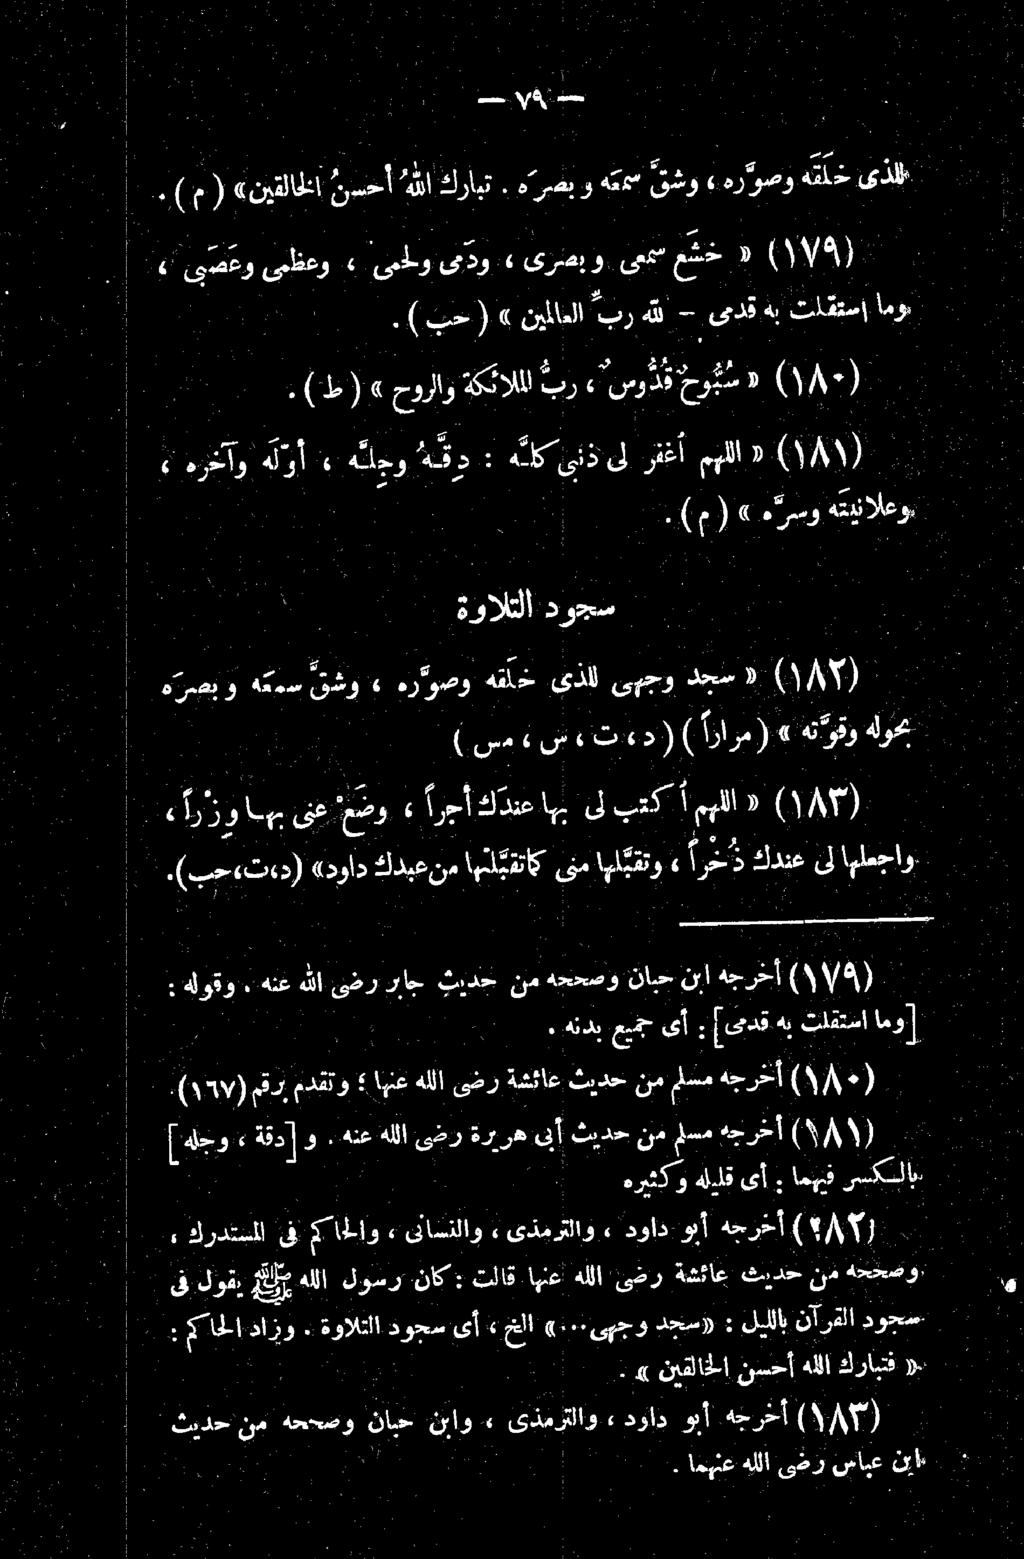 — ٧٩ —
للذى خلَقَه وصوَّره ، وشقَّ سمعَه وبصرَه . تبارك اللهُ أحسنُ الخالقين» ( م ) .
(١٧٩) « خشَع سمعى وبصرى ، ودَمى ولحمى ، وعظمى وعَصَبى ،
وما استقلت به قدمى – لله ربِّ العالمين » ( حب ) .
(١٨٠) « سُبُّوحٌ قُدُّوسٌ ، ربُّ الملائكة والروح » ( ط ) .
(١٨١) « اللهم اُغفر لى ذنبى كلَّه : دِقَّهُ وجِلَّه ، أوَّلَه وآخره ،
وعلانيتَه وسرَّه » ( م ) .
سجود التلاوة
(١٨٢) « سجد وجهى للذى خلَقه وصوَّره ، وشقَّ سمعَه وبصرَه
بحوله وقوَّته » ( مراراً ) ( د ، ت ، س ، مس )
(١٨٣) « اللهم اُكتب لى بها عندَك أجراً ، وضَعْ عنى بها وِزْراً ،
واجعلها لى عندك ذُخْراً ، وتقبَّلها منى كما تقبَّلتها من عبدك داود» (د،ت،حب).
(١٧٩) أخرجه ابن حبان وصححه من حديث جابر رضى الله عنه . وقوله :
[وما استقلت به قدمى] : أى جميع بدنه .
(١٨٠) أخرجه مسلم من حديث عائشة رضى الله عنها ؛ وتقدم برقم (١٦٧) .
(١٨١) أخرجه مسلم من حديث أبى هريرة رضى الله عنه . و [دقة ، وجله]
بالكسر فيهما : أى قليله وكثيره
(١٨٢) أخرجه أبو داود ، والترمذى ، والنسائى ، والحاكم فى المستدرك ،
وصححه من حديث عائشة رضى الله عنها قالت : كان رسول الله ﷺ يقول فى
سجود القرآن بالليل : «سجد وجهى... » الخ ، أى سجود التلاوة . وزاد الحاكم :
« فتبارك الله أحسن الخالقين » .
(١٨٣) أخرجه أبو داود ، والترمذى ، وابن حبان وصححه من حديث
ابن عباس رضى الله عنهما .